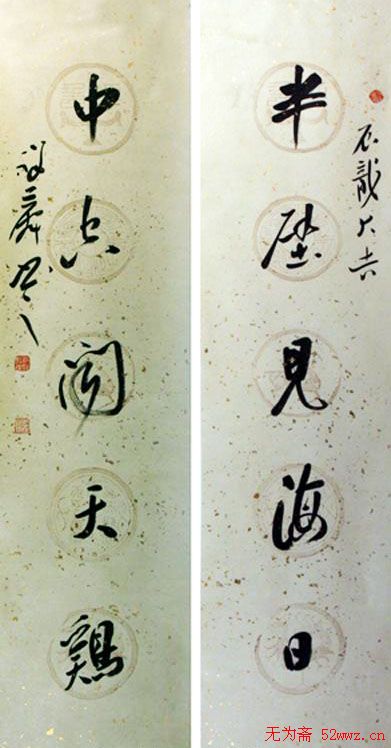 半壁見海日
龍大吉
中空聞天鷄
无为斋 52wwz.cn